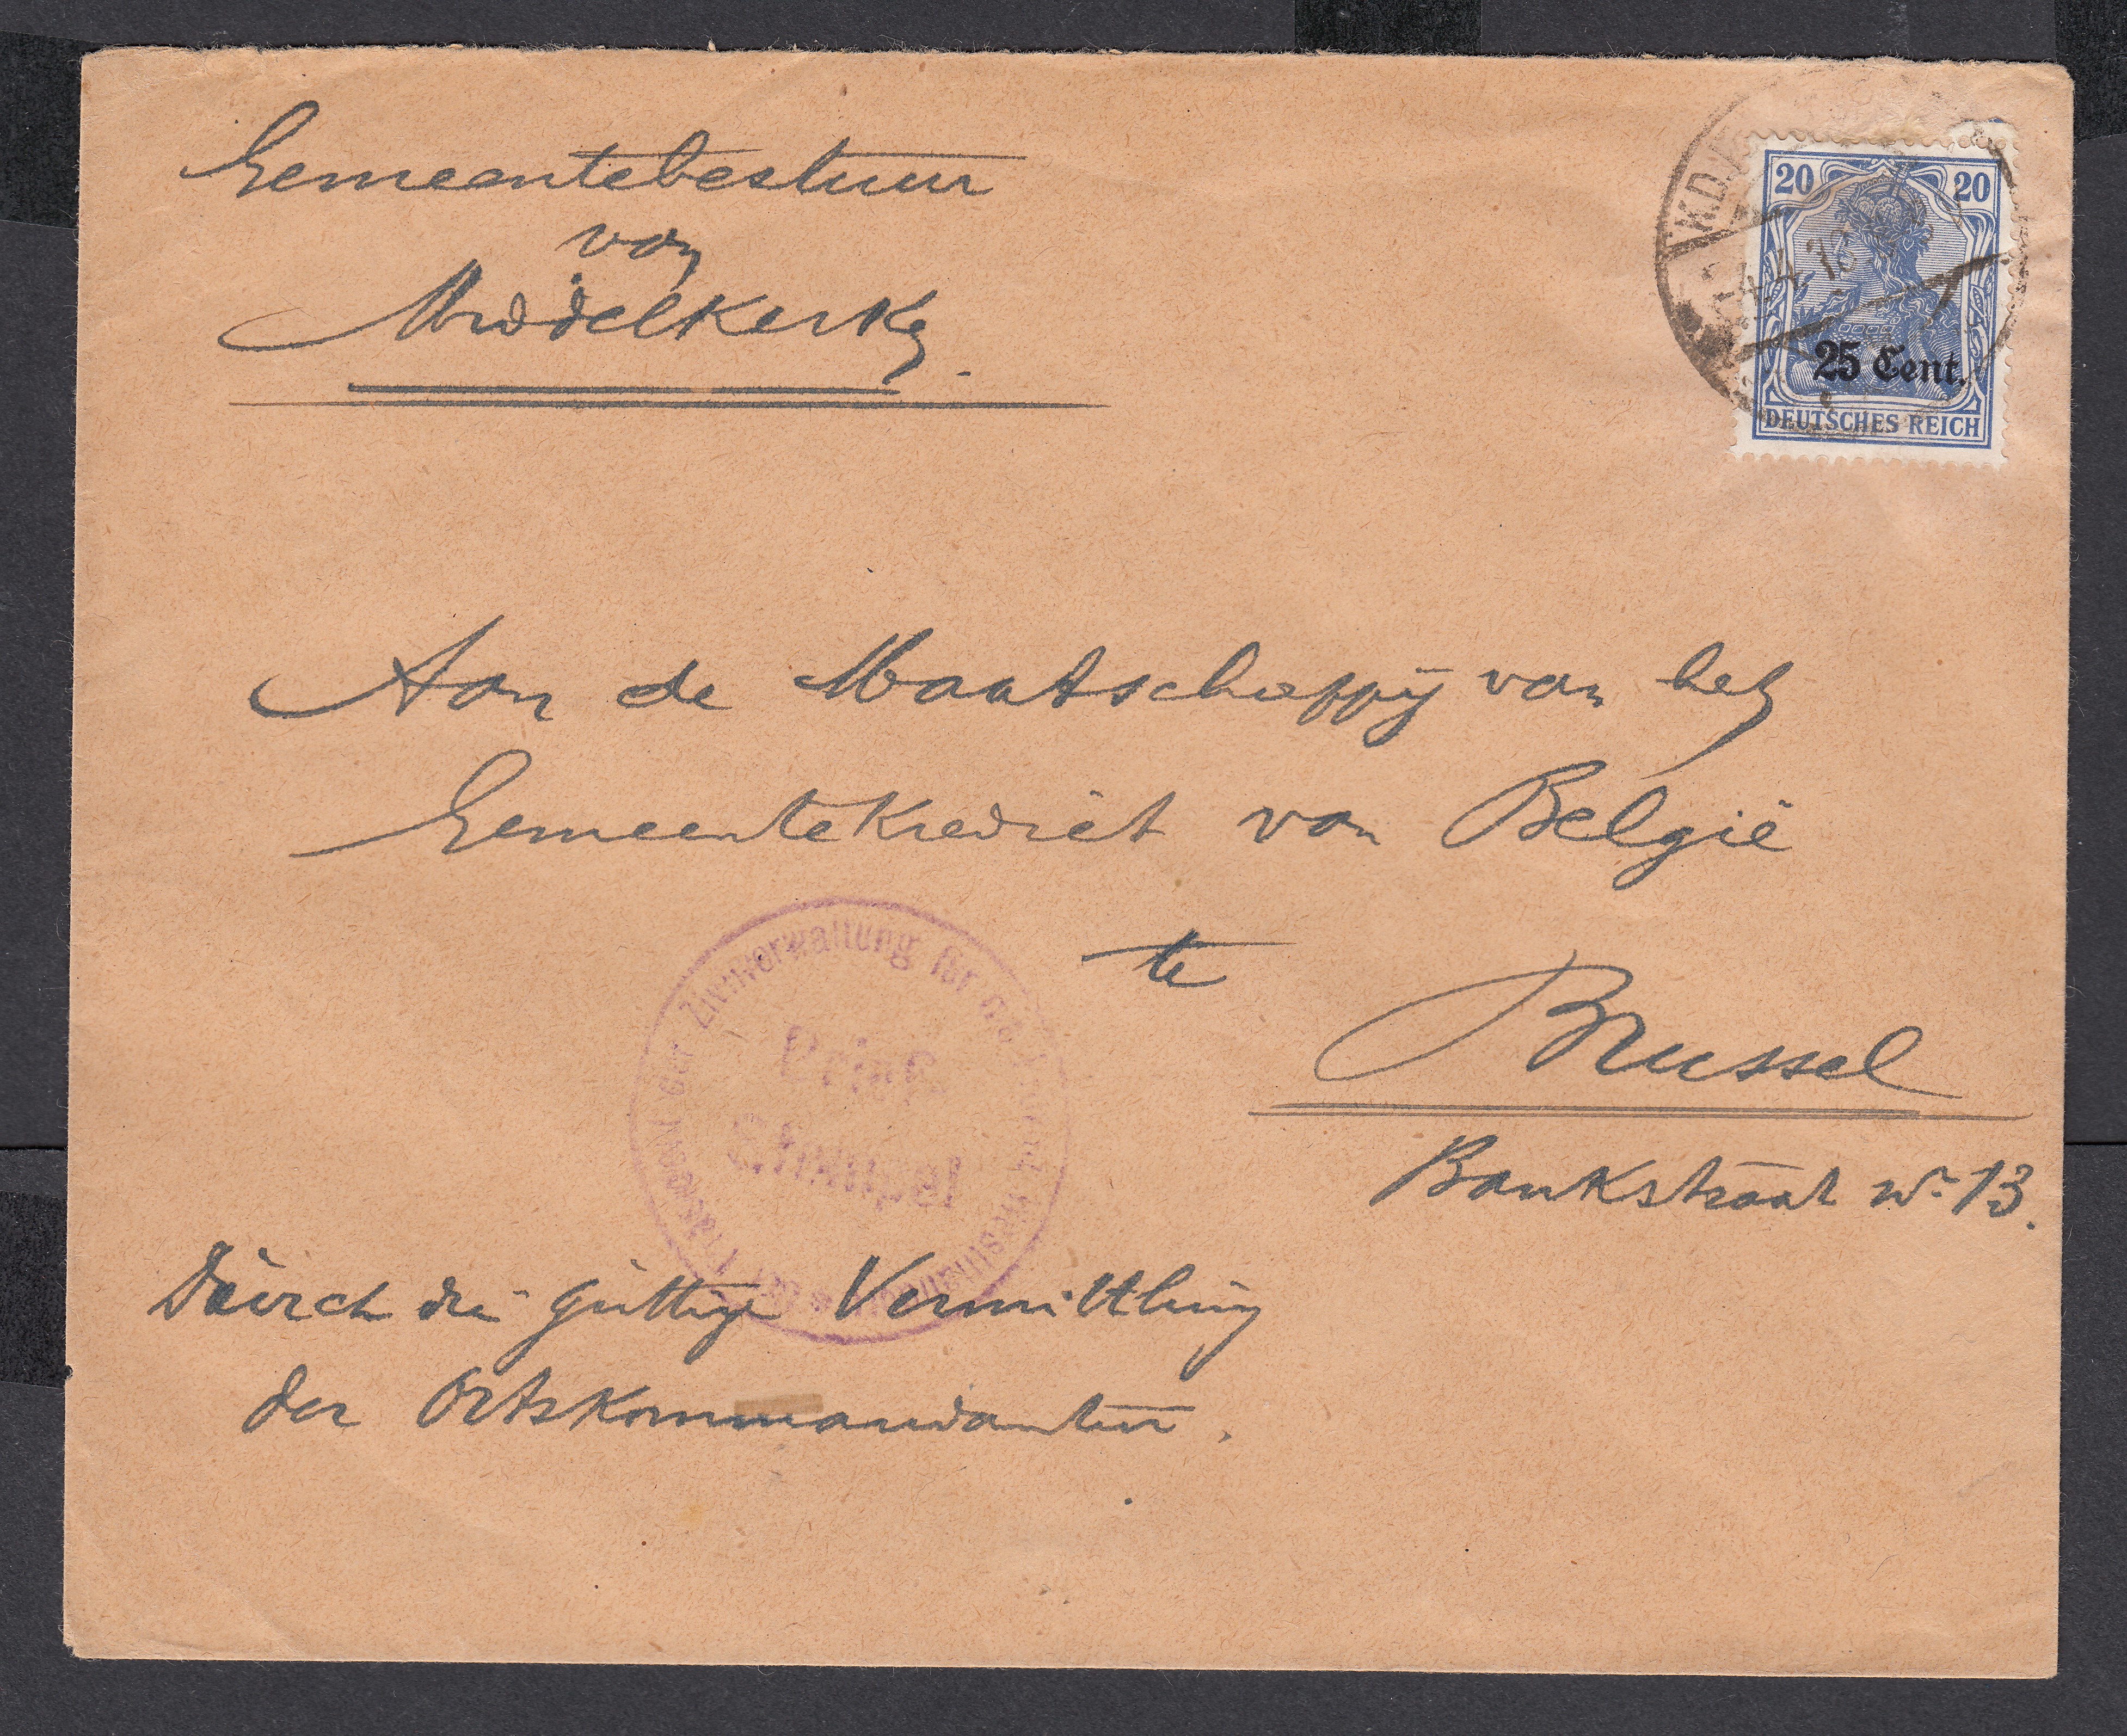 Gemeentebestuur
van
Middelkerke.
K.D.
4.4.18
20 20
25 Cent.
DEUTSCHES REICH
Aan de Maatschappij van het
Gemeentekrediet van België
te
Brussel
Bankstraat No 13.
der Zivilverwaltung für die
Brief-
Stempel
Dŭrch die gŭttige Vermittlŭng
der Ortskommandantur.